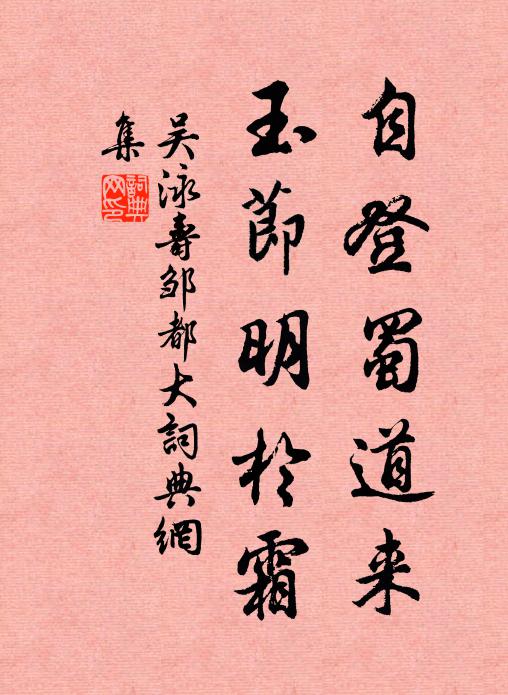 自登蜀道来
玉莭明於霜
吴泳壽邹都大詞典網
集
詞典网印